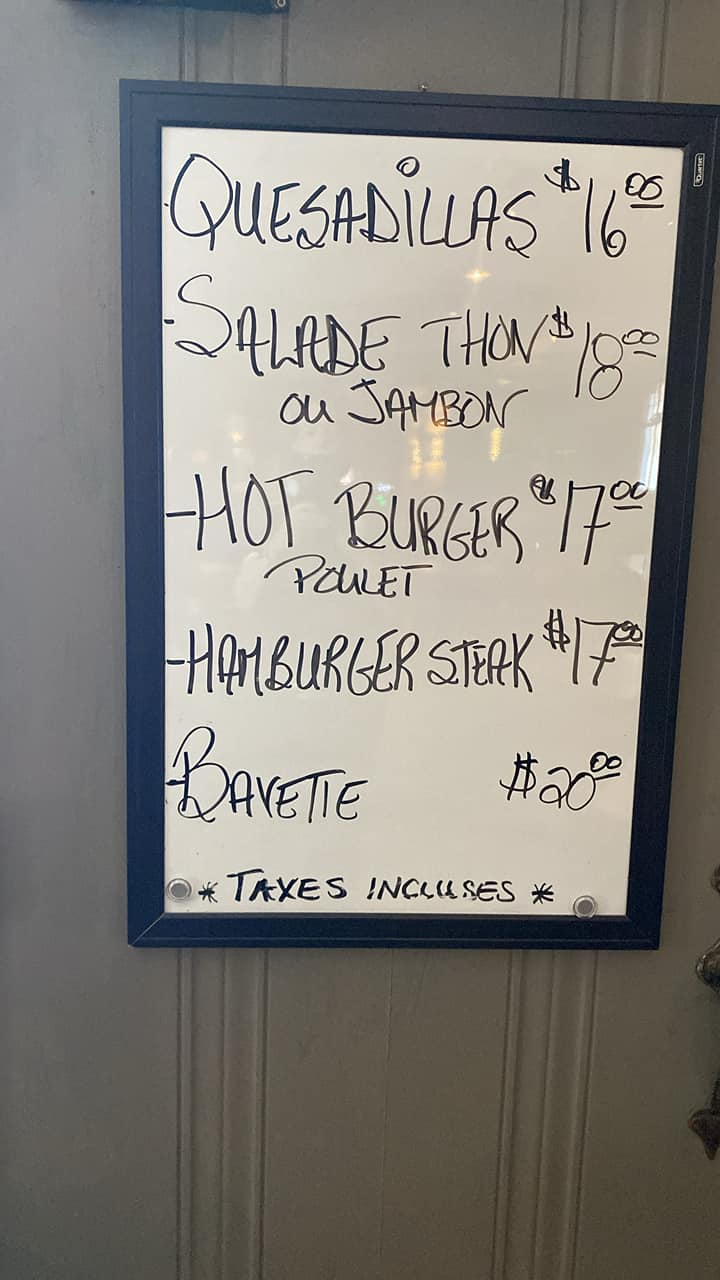 QUESADILLAS $16.00
-SALADE THON $18.00
OU JAMBON
-HOT BURGER $17.00
POULET
-HAMBURGER STEAK $17.00
-BAVETTE $20.00
* TAXES INCLUSES *